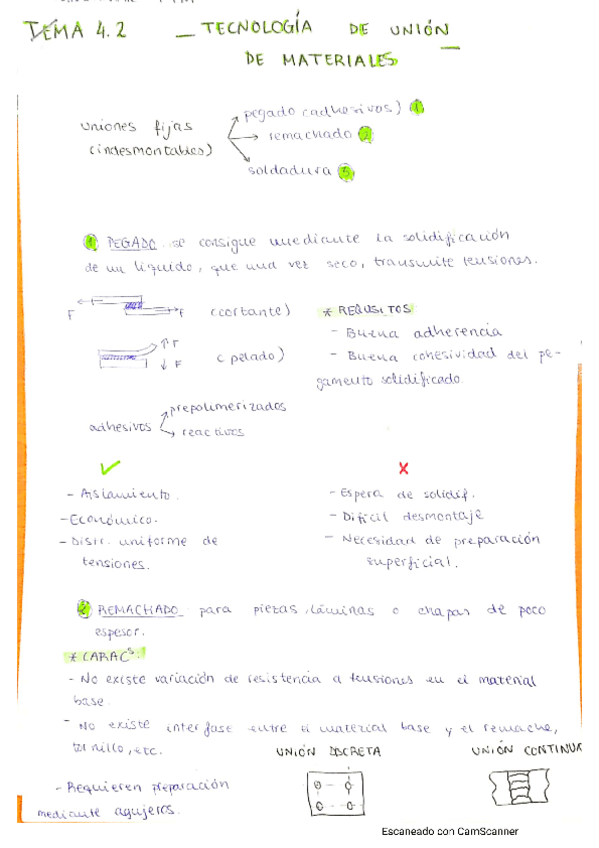 TEMA 4.2 _ TECNOLOGÍA DE UNIÓN
DE MATERIALES
uniones fijas
(indesmontables)
pegado (adhesivos) 1
remachado 2
soldadura 3
1 PEGADO se consigue mediante la solidificación
de un líquido, que una vez seco, transmite tensiones.
F F (cortante)
F F (pelado)
* REQUSITOS
- Buena adherencia
- Buena cohesividad del pe-
gamento solidificado.
adhesivos
prepolimerizados
reactivos
✓
- Aislamiento.
- Económico.
- Distr. uniforme de
tensiones.
x
- Espera de solidif.
- Difícil desmontaje
- Necesidad de preparación
superficial.
2 REMACHADO para piezas, láminas o chapas de poco
espesor.
* CARACs.
- No existe variación de resistencia a tensiones en el material
base.
- No existe interfase entre el material base y el remache,
tornillo, etc.
- Requieren preparación
mediante agujeros.
UNIÓN DSCRETA
UNIÓN CONTINUA
Escaneado con CamScanner